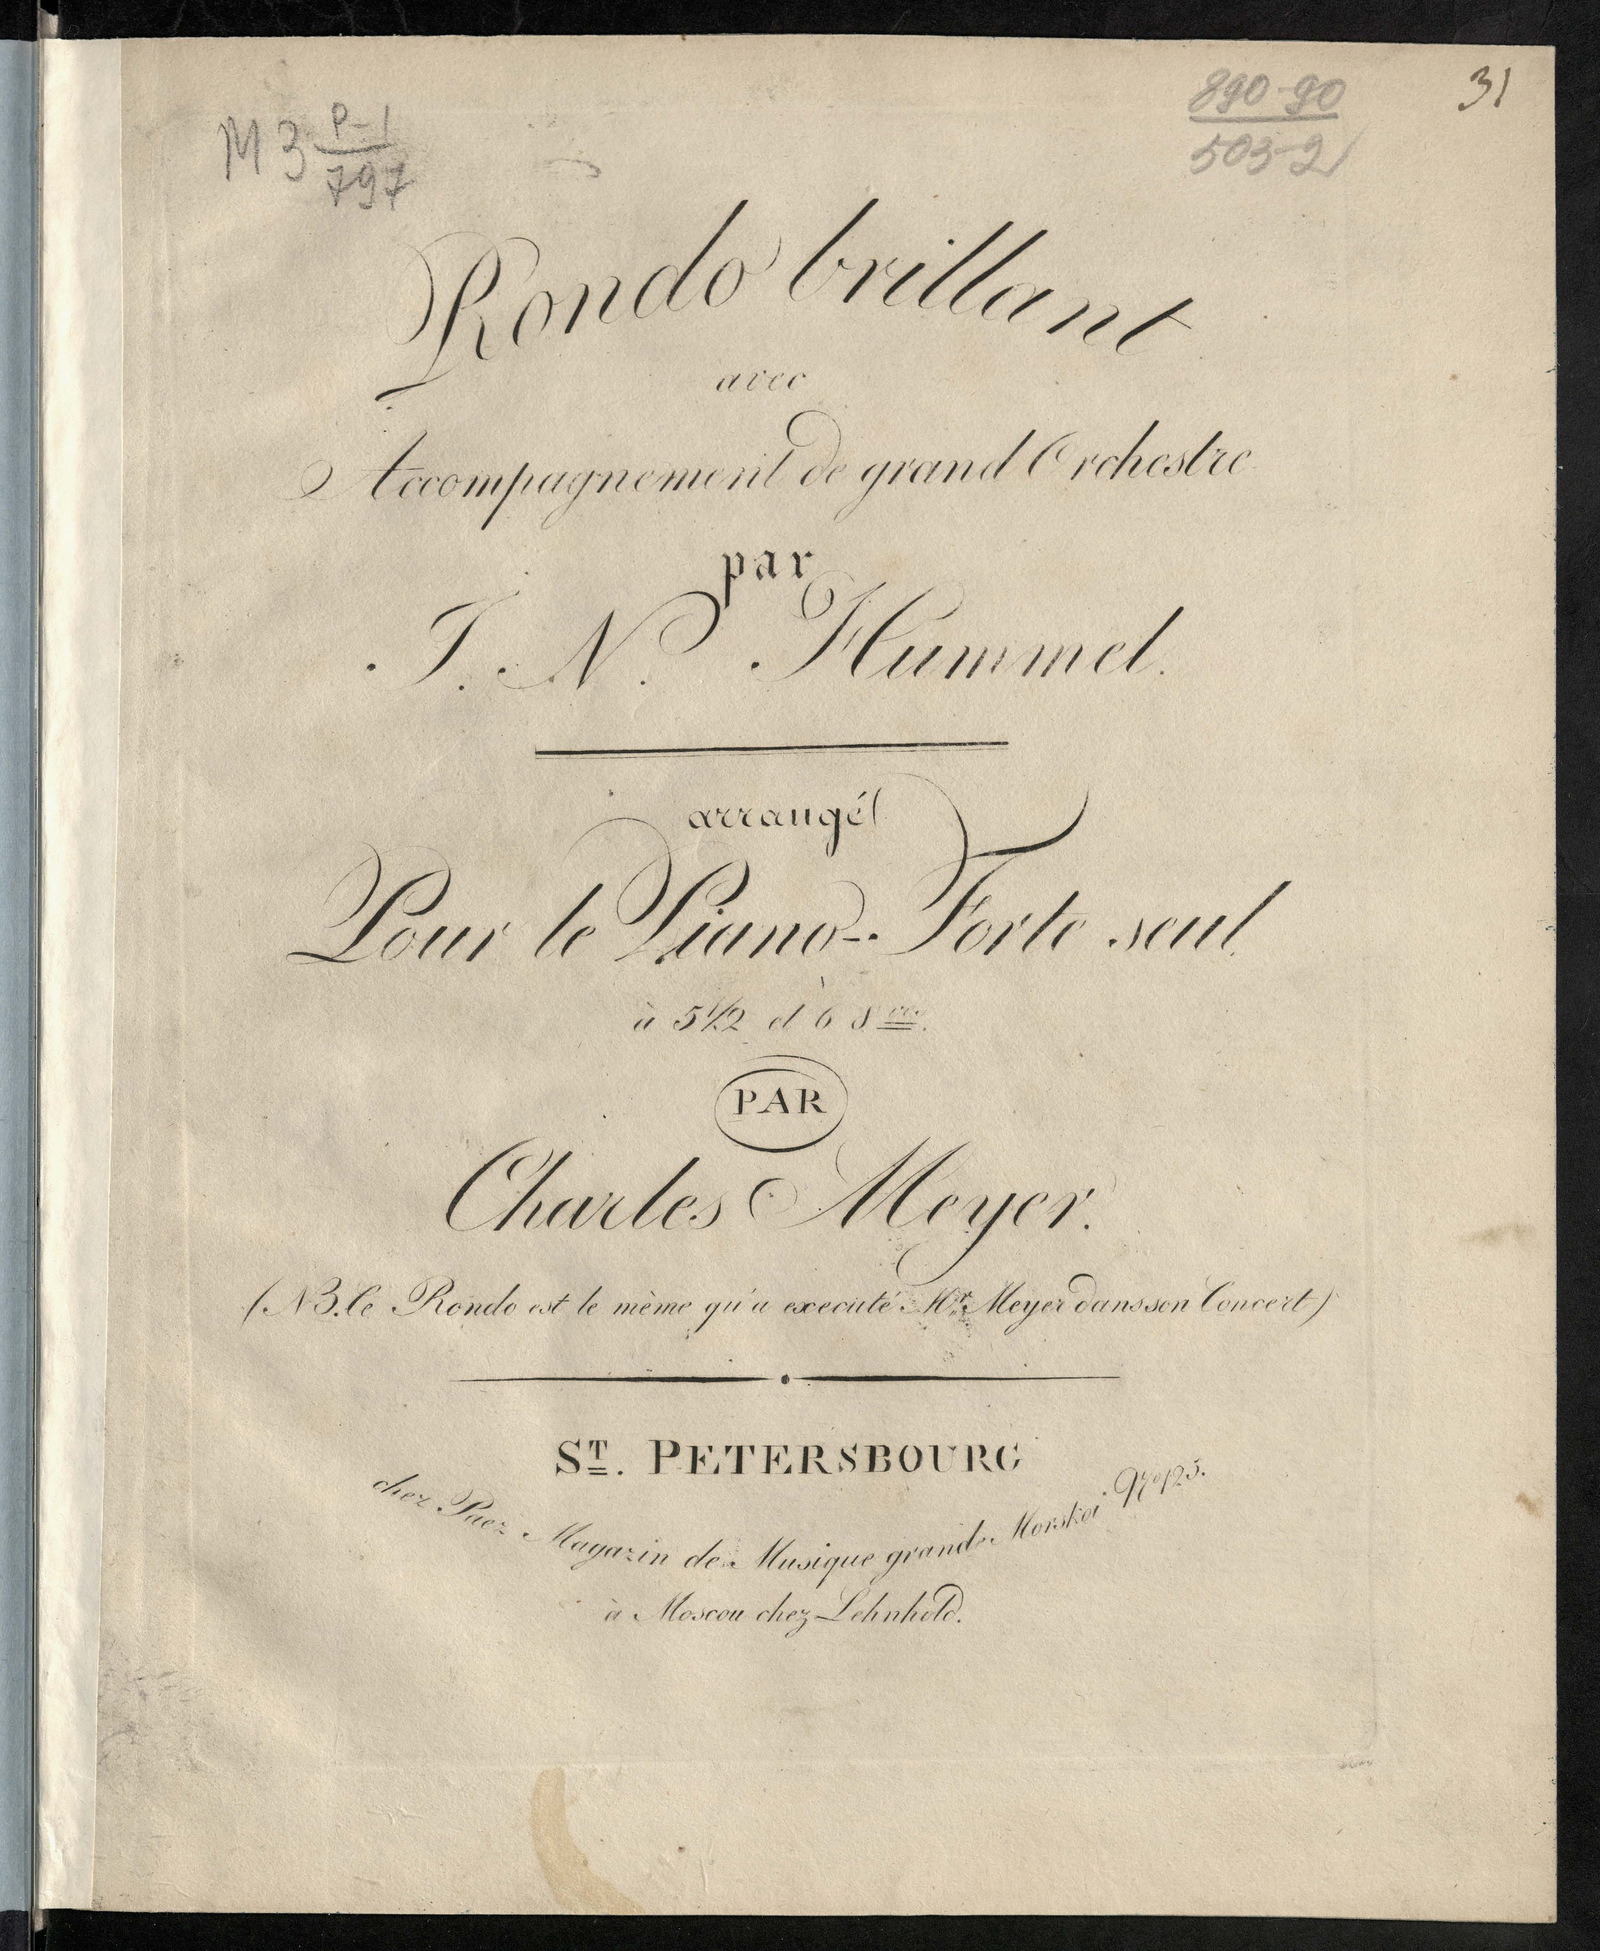 31
890-90
503-2
М 3 Р-1
797
Rondo brillant
avec
Accompagnement de grand Orchestre
par
J. N. Hummel.
arrangé
Pour le Piano-Forte seul
à 5 1/2 et 6 8ves.
PAR
Charles Meyer.
(NB. Ce Rondo est le mème qu'a executé Mr. Meyer dans son Concert)
ST. PETERSBOURG
chez Paez Magazin de Musique grande Morskoi No 125.
à Moscou chez Lehnhold.